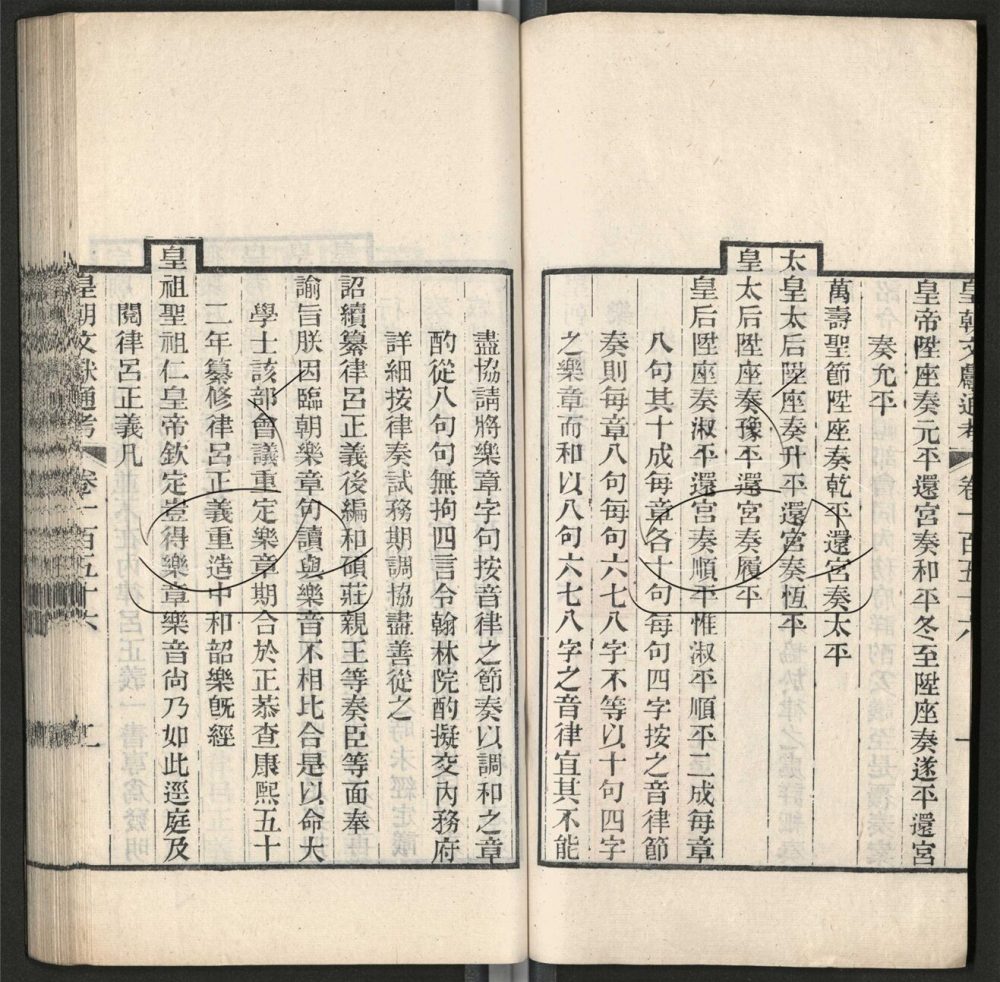 皇朝文獻通考 卷一百五十六
皇帝陞座奏元平還宮奏和平冬至陞座奏遂平還宮
奏允平
萬壽聖節陞座奏乾平還宮奏太平
太皇太后陞座奏升平還宮奏恆平
皇太后陞座奏豫平還宮奏履平
皇后陞座奏淑平還宮奏順平惟淑平順平二成每章
八句其十成每章各十句每句四字按之音律節
奏則每章八句每句六七八字不等以十句四字
之樂章而和以八句六七八字之音律宜其不能
盡協請將樂章字句按音律之節奏以調和之章
酌從八句句無拘四言令翰林院酌擬交內務府
詳細按律奏試務期調協盡善從之
詔續纂律呂正義後編和碩莊親王等奏臣等面奉
諭旨朕因臨朝樂章句讀與樂音不相比合是以命大
學士該部會議重定樂章期合於正茶查康熙五十
二年纂修律呂正義重造中和韶樂既經
皇祖聖祖仁皇帝欽定豈得樂章樂音尙乃如此逕庭及
閱律呂正義凡
皇朝文獻通考 卷一百五十六